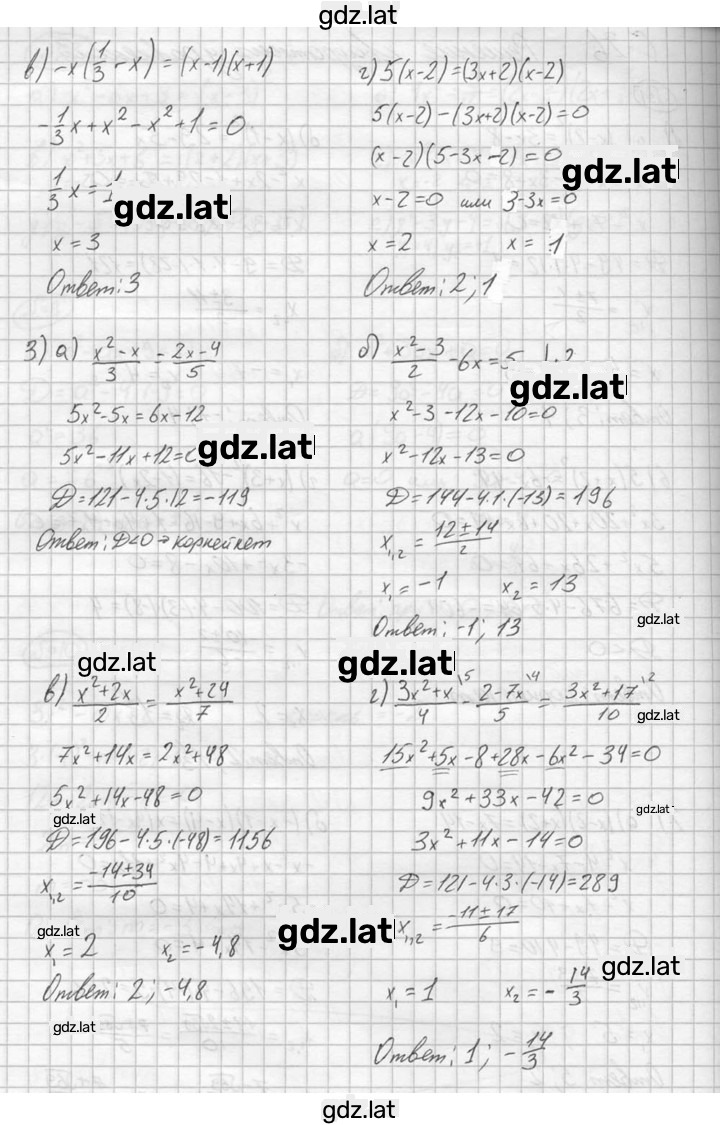 gdz.lat
в) -x(1/3 - x) = (x-1)(x+1)
-1/3x + x² - x² + 1 = 0
1/3x = 1
gdz.lat
x = 3
Ответ: 3
г) 5(x-2) = (3x+2)(x-2)
5(x-2) - (3x+2)(x-2) = 0
(x-2)(5-3x-2) = 0
gdz.lat
x-2=0 или 3-3x=0
x = 2 x = 1
Ответ: 2; 1
3) а) (x²-x)/3 = (2x-4)/5
5x²-5x = 6x-12
5x²-11x+12=0
gdz.lat
D = 121-4·5·12 = -119
Ответ: D<0 ⇒ корней нет
б) (x²-3)/2 - 6x = 5 |·2
gdz.lat
x²-3-12x-10=0
x²-12x-13=0
D = 144-4·1·(-13) = 196
x₁,₂ = (12±14)/2
x₁ = -1 x₂ = 13
gdz.lat
Ответ: -1; 13
gdz.lat
gdz.lat
в) (x²+2x)/2 = (x²+24)/7
7x²+14x = 2x²+48
5x²+14x-48=0
gdz.lat
D = 196-4·5·(-48) = 1156
x₁,₂ = (-14±34)/10
gdz.lat
x₁ = 2 x₂ = -4,8
Ответ: 2; -4,8
gdz.lat
г) (3x²+x)/4 \5 - (2-7x)/5 \4 = (3x²+17)/10 \2
gdz.lat
15x²+5x-8+28x-6x²-34=0
9x²+33x-42=0
gdz.lat
3x²+11x-14=0
D = 121-4·3·(-14) = 289
gdz.lat
x₁,₂ = (-11±17)/6
gdz.lat
x₁ = 1 x₂ = -14/3
Ответ: 1; -14/3
gdz.lat